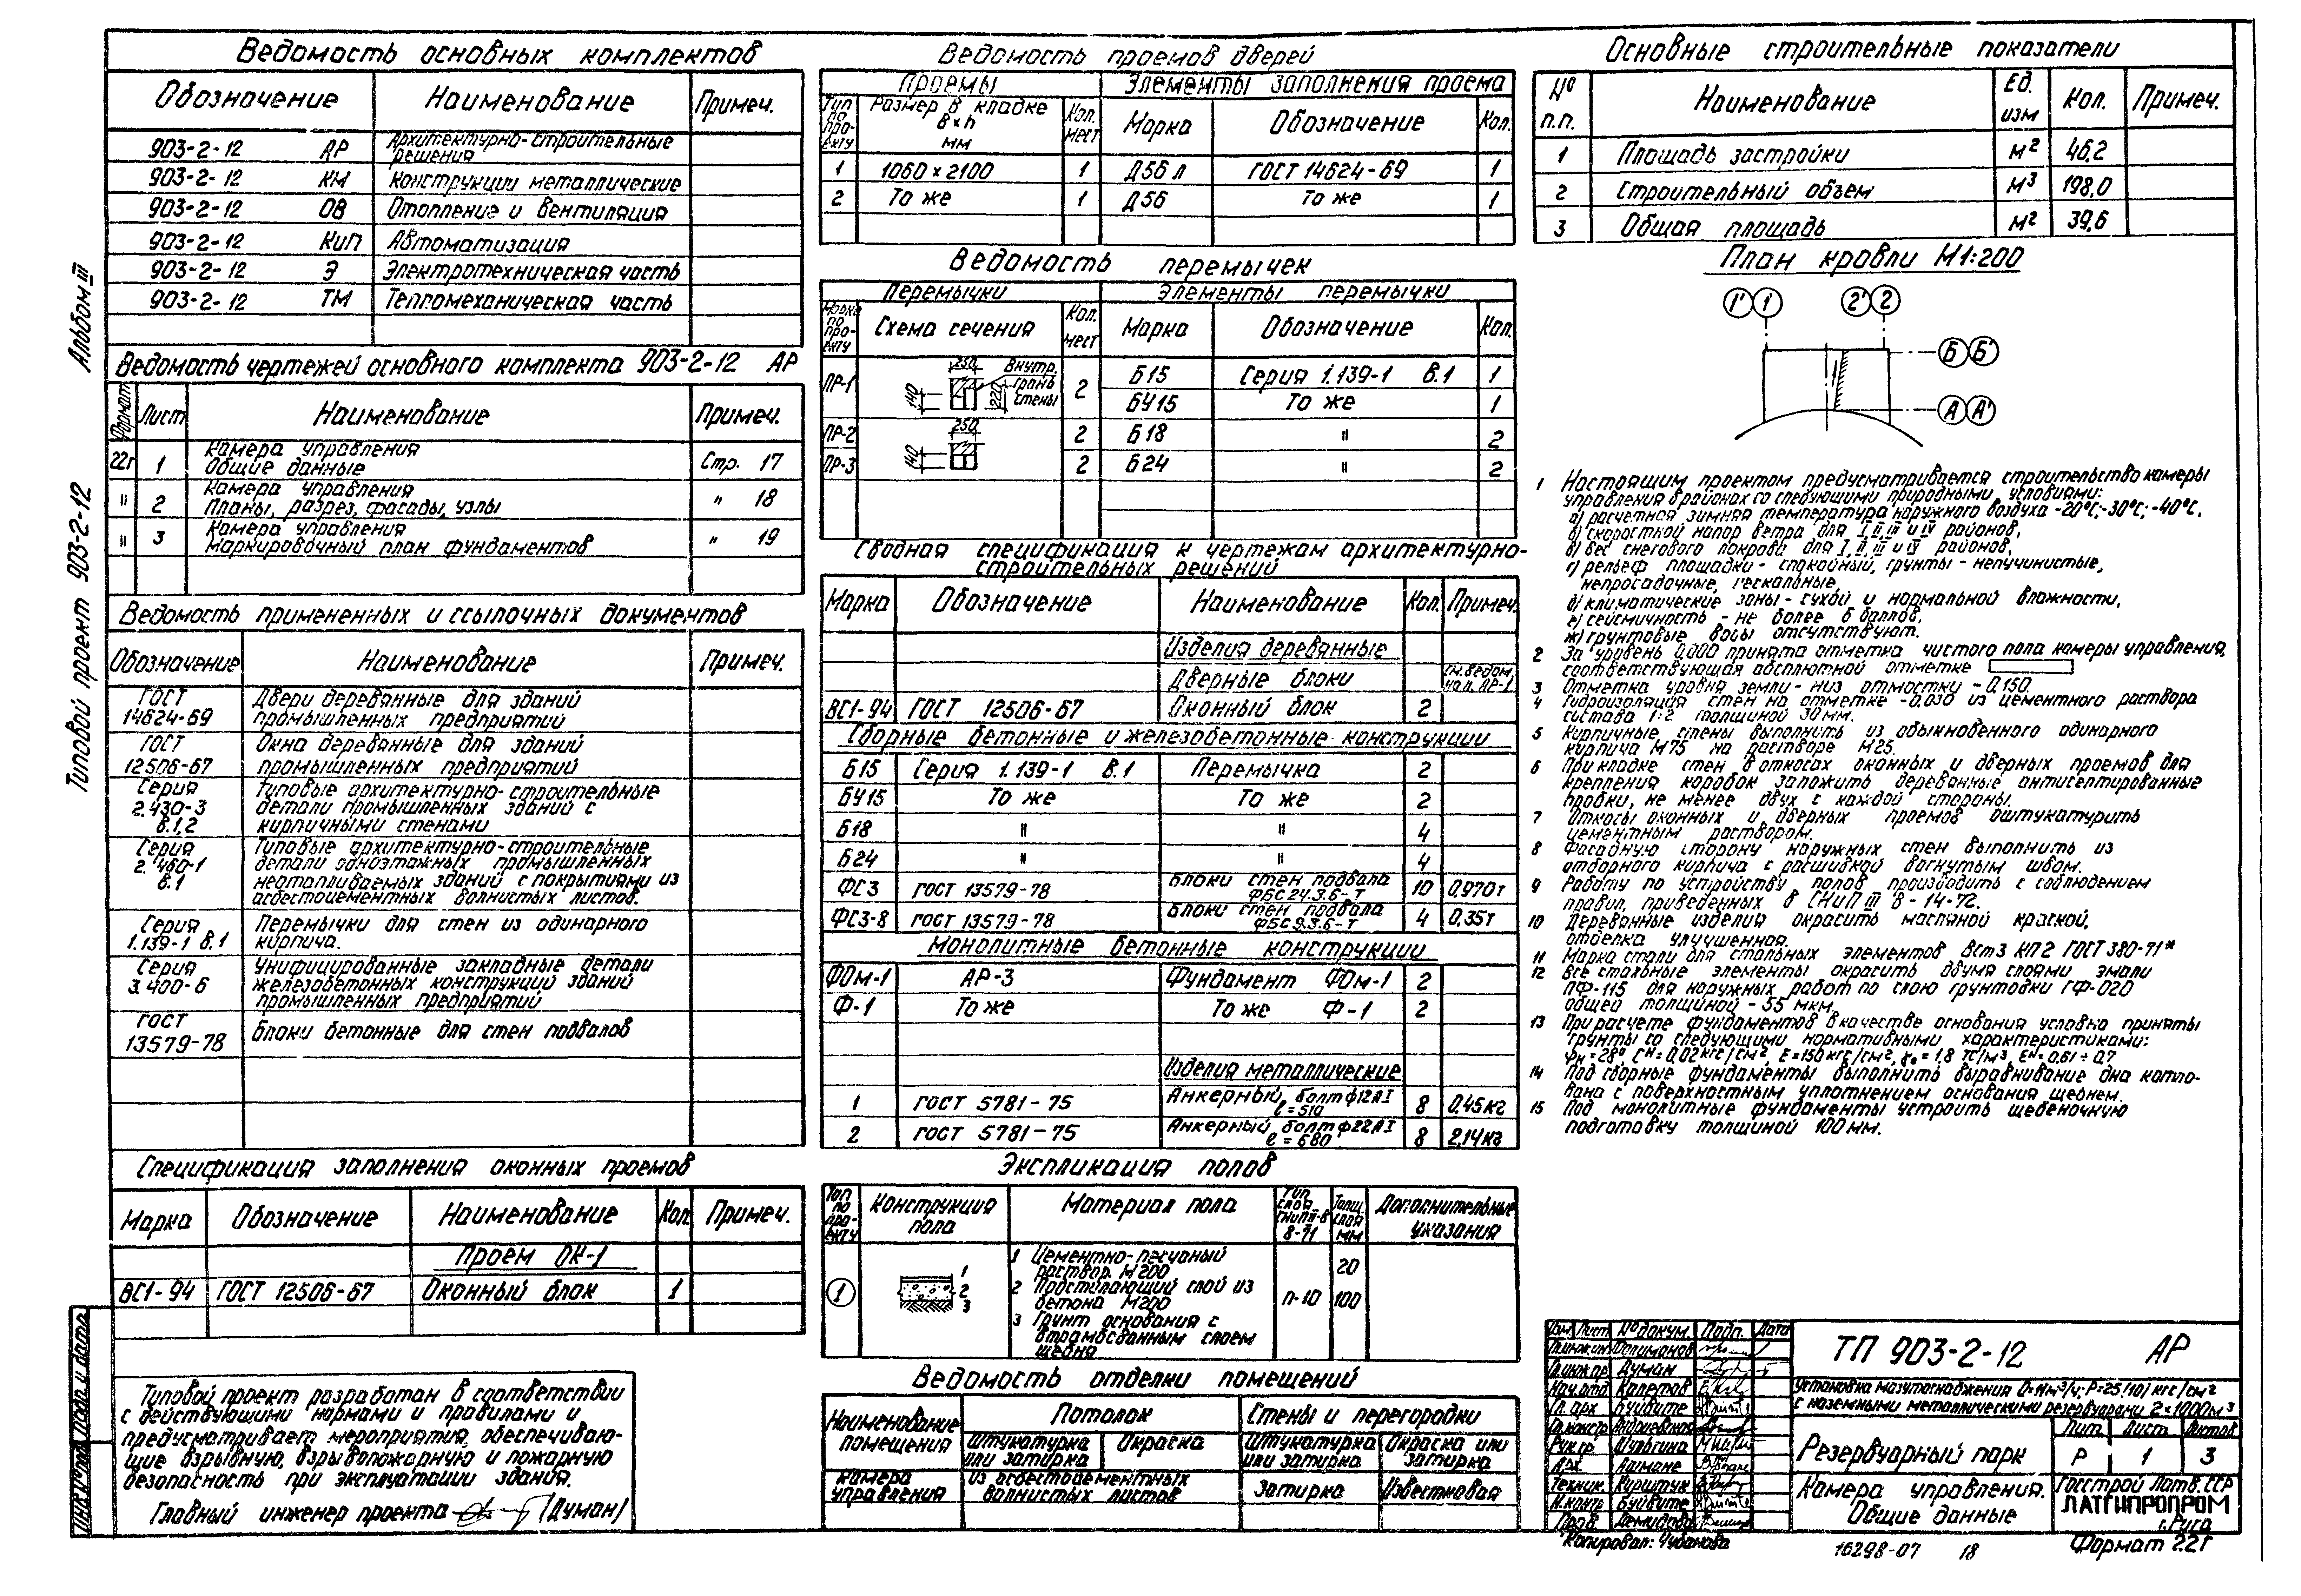 Альбом III
Типовой проект 903-2-12
Ведомость основных комплектов
Обозначение Наименование Примеч.
903-2-12 АР Архитектурно-строительные решения
903-2-12 КМ Конструкции металлические
903-2-12 ОВ Отопление и вентиляция
903-2-12 КиП Автоматизация
903-2-12 Э Электротехническая часть
903-2-12 ТМ Тепломеханическая часть
Ведомость чертежей основного комплекта 903-2-12 АР
Формат Лист Наименование Примеч.
22г 1 Камера управления
Общие данные Стр. 17
" 2 Камера управления
Планы, разрез, фасады, узлы " 18
" 3 Камера управления
Маркировочный план фундаментов " 19
Ведомость примененных и ссылочных документов
Обозначение Наименование Примеч.
ГОСТ 14624-69 Двери деревянные для зданий
промышленных предприятий
ГОСТ 12506-67 Окна деревянные для зданий
промышленных предприятий
Серия 2.430-3 в.1,2 Типовые архитектурно-строительные
детали промышленных зданий с
кирпичными стенами
Серия 2.460-1 в.1 Типовые архитектурно-строительные
детали одноэтажных промышленных
неотапливаемых зданий с покрытиями из
асбестоцементных волнистых листов.
Серия 1.139-1 в.1 Перемычки для стен из одинарного
кирпича.
Серия 3.400-6 Унифицированные закладные детали
железобетонных конструкций зданий
промышленных предприятий
ГОСТ 13579-78 Блоки бетонные для стен подвалов
Спецификация заполнения оконных проемов
Марка Обозначение Наименование Кол. Примеч.
Проем ОК-1
ВС1-94 ГОСТ 12506-67 Оконный блок 1
Типовой проект разработан в соответствии
с действующими нормами и правилами и
предусматривает мероприятия, обеспечиваю-
щие взрывную, взрывопожарную и пожарную
безопасность при эксплуатации здания.
Главный инженер проекта (Думан)
Инв.№ подл. Подп. и дата
Ведомость проемов дверей
Проемы Элементы заполнения проема
Тип по проекту Размер в кладке в×h мм Кол. мест Марка Обозначение Кол.
1 1060×2100 1 Д56 л ГОСТ 14624-69 1
2 То же 1 Д56 То же 1
Ведомость перемычек
Перемычки Элементы перемычки
Марка по проекту Схема сечения Кол. мест Марка Обозначение Кол.
ПР-1 250 140 220 Внутр. грань стены 2 Б15 Серия 1.139-1 в.1 1
БУ15 То же 1
ПР-2 250 140 2 Б18 " 2
ПР-3 2 Б24 " 2
Сводная спецификация к чертежам архитектурно-
строительных решений
Марка Обозначение Наименование Кол. Примеч.
Изделия деревянные
Дверные блоки см. ведом. на л. АР-1
ВС1-94 ГОСТ 12506-67 Оконный блок 2
Сборные бетонные и железобетонные конструкции
Б15 Серия 1.139-1 в.1 Перемычка 2
БУ15 То же То же 2
Б18 " " 4
Б24 " " 4
ФС3 ГОСТ 13579-78 Блоки стен подвала ФБС24.3.6-Т 10 0,970т
ФС3-8 ГОСТ 13579-78 Блоки стен подвала ФБС9.3.6-Т 4 0,35т
Монолитные бетонные конструкции
ФОм-1 АР-3 Фундамент ФОм-1 2
Ф-1 То же То же Ф-1 2
Изделия металлические
1 ГОСТ 5781-75 Анкерный болт ф12АI ℓ=510 8 0,45кг
2 ГОСТ 5781-75 Анкерный болт ф22АI ℓ=680 8 2,14кг
Экспликация полов
Тип по проекту Конструкция пола Материал пола Тип слоя СНиП II-В 8-71 Толщ. слоя мм Дополнительные указания
1 1 2 3
1 Цементно-песчаный
раствор М200 20
2 Подстилающий слой из
бетона М200 П-10 100
3 Грунт основания с
втрамбованным слоем
щебня
Ведомость отделки помещений
Наименование помещения Потолок Стены и перегородки
Штукатурка или затирка Окраска Штукатурка или затирка Окраска или затирка
Камера управления из асбестоцементных волнистых листов Затирка Известковая
Основные строительные показатели
№ п.п. Наименование Ед. изм Кол. Примеч.
1 Площадь застройки м² 46,2
2 Строительный объем м³ 198,0
3 Общая площадь м² 39,6
План кровли М1:200
1' 1 2' 2
Б Б'
А А'
1 Настоящим проектом предусматривается строительство камеры
управления в районах со следующими природными условиями:
а) расчетная зимняя температура наружного воздуха -20°С; -30°С; -40°С.
б) скоростной напор ветра для I, II, III и IV районов,
в) вес снегового покрова для I, II, III и IV районов,
г) рельеф площадки - спокойный, грунты - непучинистые,
непросадочные, нескальные,
д) климатические зоны - сухой и нормальной влажности,
е) сейсмичность - не более 6 баллов,
ж) грунтовые воды отсутствуют.
2 За уровень 0,000 принята отметка чистого пола камеры управления,
соответствующая абсолютной отметке
3 Отметка уровня земли - низ отмостки -0,150.
4 Гидроизоляция стен на отметке -0,030 из цементного раствора
состава 1:2 толщиной 30мм.
5 Кирпичные стены выполнить из обыкновенного одинарного
кирпича М75 на растворе М25.
6 При кладке стен в откосах оконных и дверных проемов для
крепления коробок заложить деревянные антисептированные
пробки, не менее двух с каждой стороны.
7 Откосы оконных и дверных проемов оштукатурить
цементным раствором.
8 Фасадную сторону наружных стен выполнить из
отборного кирпича с расшивкой вогнутым швом.
9 Работу по устройству полов производить с соблюдением
правил, приведенных в СНиП III В-14-72.
10 Деревянные изделия окрасить масляной краской,
отделка улучшенная.
11 Марка стали для стальных элементов Вст3 КП2 ГОСТ 380-71*
12 Все стальные элементы окрасить двумя слоями эмали
ПФ-115 для наружных работ по слою грунтовки ГФ-020
общей толщиной - 55 мкм.
13 При расчете фундаментов в качестве основания условно приняты
грунты со следующими нормативными характеристиками:
φн=28°, Сн=0,02кгс/см², Е=150кгс/см², γо=1,8 тс/м³, Ен=0,61÷0,7
14 Под сборные фундаменты выполнить выравнивание дна котло-
вана с поверхностным уплотнением основания щебнем.
15 Под монолитные фундаменты устроить щебеночную
подготовку толщиной 100мм.
Изм. Лист № докум. Подп. Дата
Гл.инж.пр Думан
Нач.отд Калетов
Гл.арх Буйвите
Гл.констр
Рук.гр. Шульгина
Арх. Ашмане
Техник.
Н.контр Буйвите
Пров. Демидова
ТП 903-2-12 АР
Установка мазутоснабжения Q=11м³/ч; Р=25(10) кгс/см²
с наземными металлическими резервуарами 2×1000м³
Резервуарный парк
Лит. Лист Листов
Р 1 3
Камера управления.
Общие данные
Госстрой Латв.ССР
ЛАТГИПРОПРОМ
г.Рига
Копировал: Чубанова
16298-07 18
Формат 22г